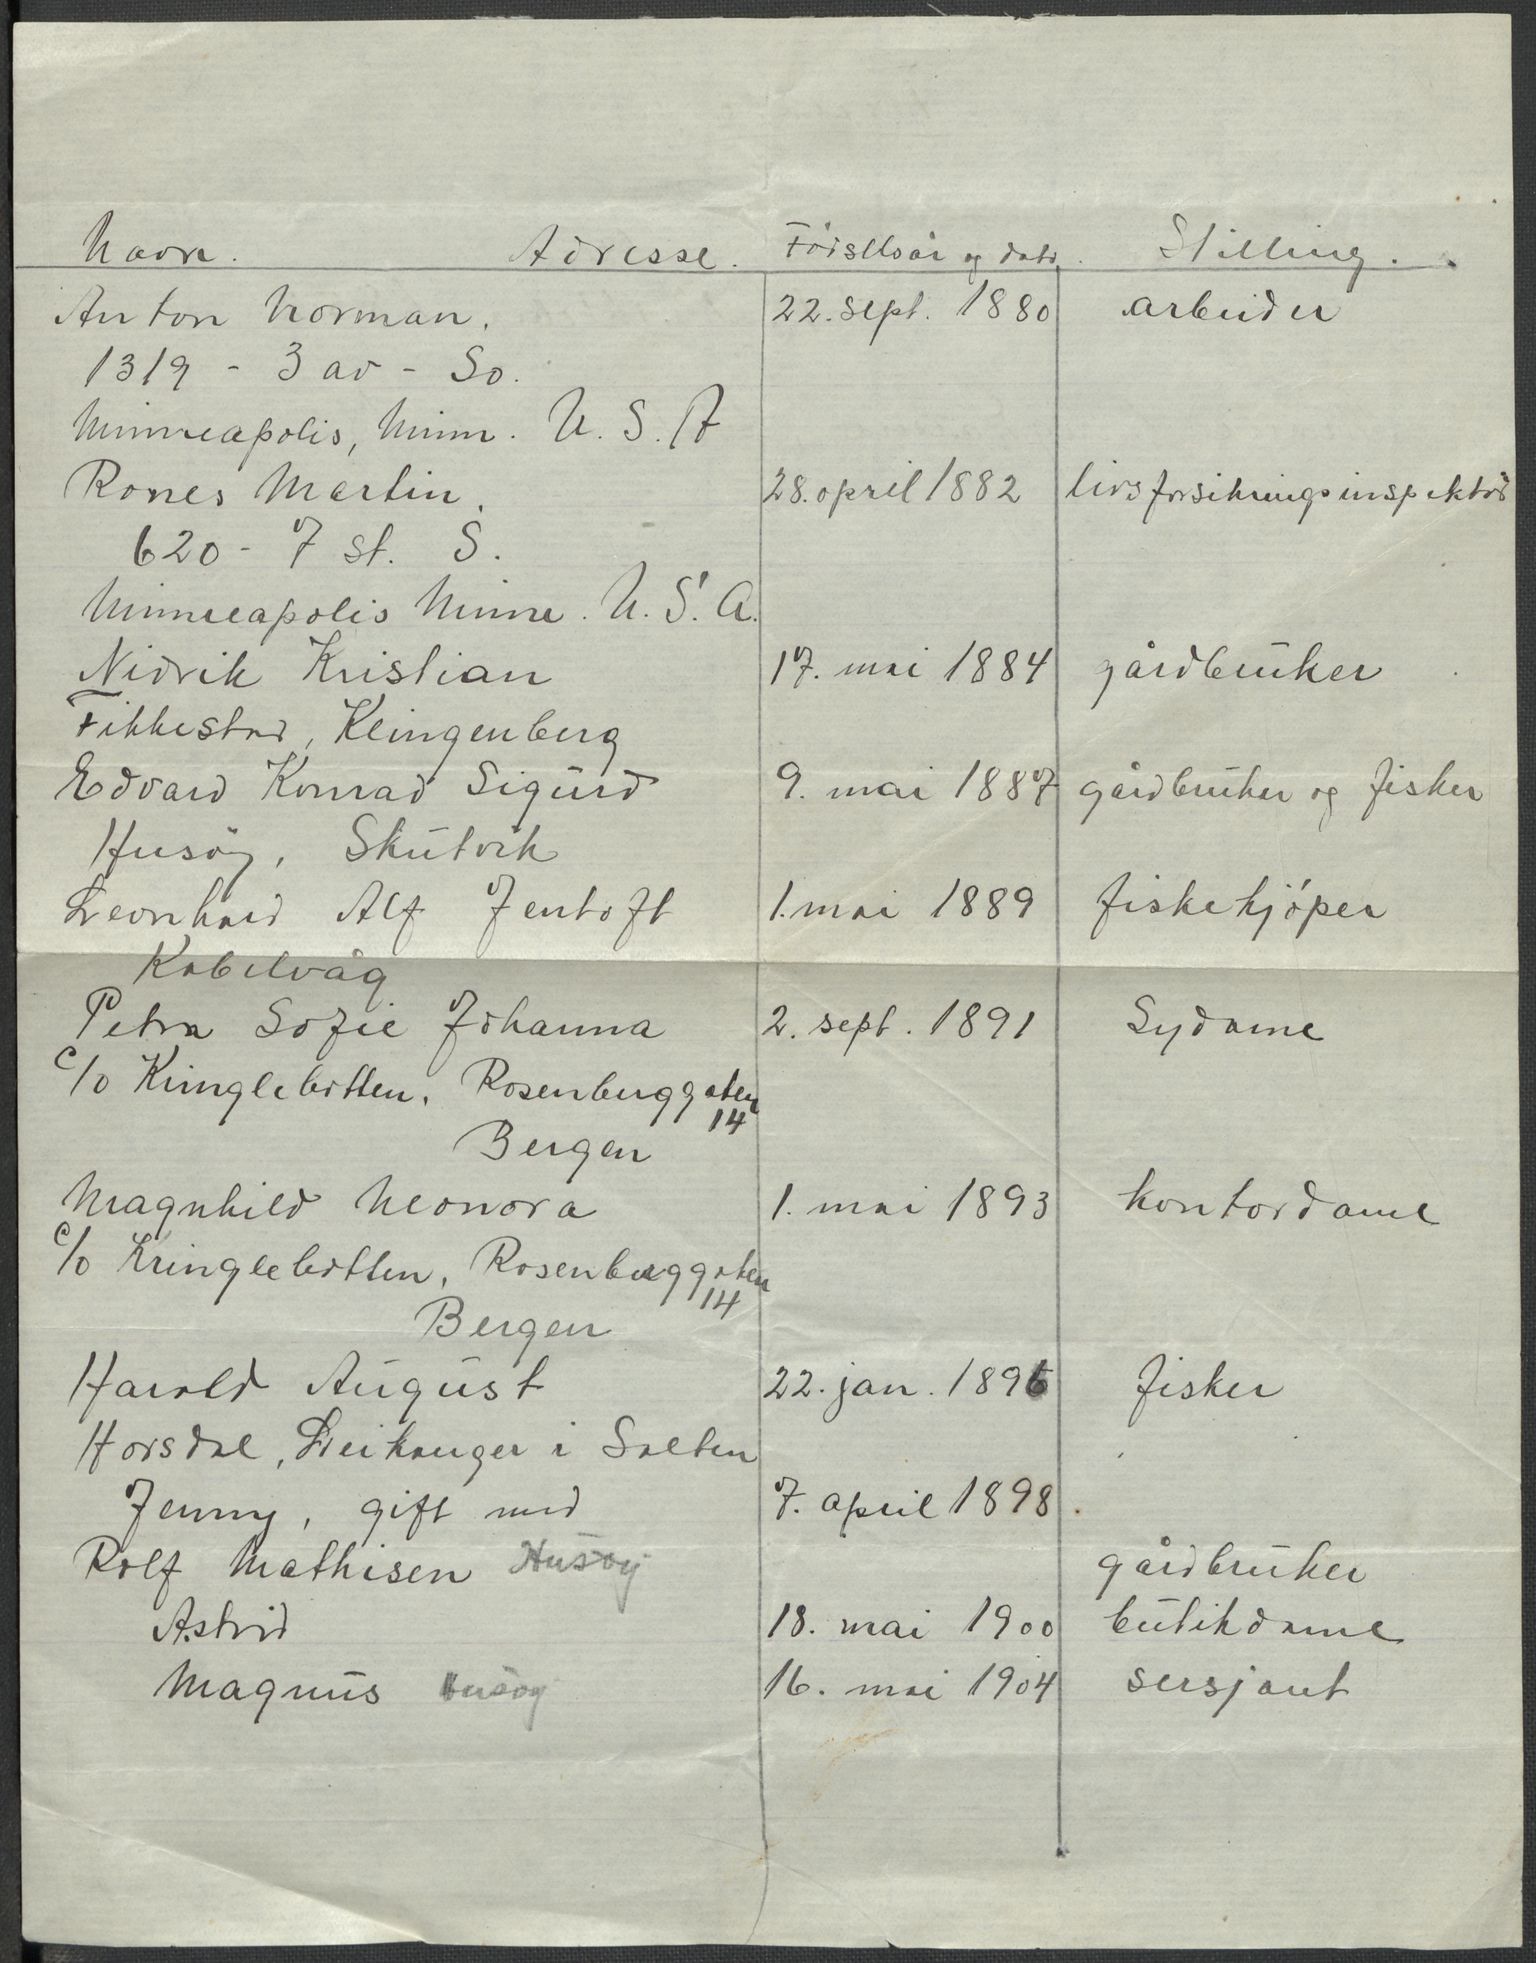 Navn. Adresse. Fødselsår og dato. Stilling.
Anton Norman. 22. sept. 1880 arbeider
1319 - 3 av - So.
Minneapolis, Minn. U. S. A
Rones Martin. 28. april 1882 livsforsikringsinspektør
620 - 7 st. S.
Minneapolis Minne. U. S. A.
Nidrik Kristian 17. mai 1884 gårdbrüker
Fikkestad, Klingenberg
Edvard Konrad Sigürd 9. mai 1887 gårdbrüker og fisker
Husøy, Skütvik
Leonhard Alf Jentoft 1. mai 1889 fiskekjøper
Kabelvåg
Petra Sofie Johanna 2. sept. 1891 Sydame
c/o Kringlebotten, Rosenberggaten
14
Bergen
Magnhild Neonora 1. mai 1893 kontordame
c/o Kringlebotten, Rosenberggaten
14
Bergen
Harald Aügüst 22. jan. 1896 fisker
Horsdal, Leikanger i Salten
Jenny, gift med 7. april 1898.
Rolf Mathisen Husøy gårdbrüker
Astrid 18. mai 1900 bütikdame
Magnüs Husøy 16. mai 1904 sersjant